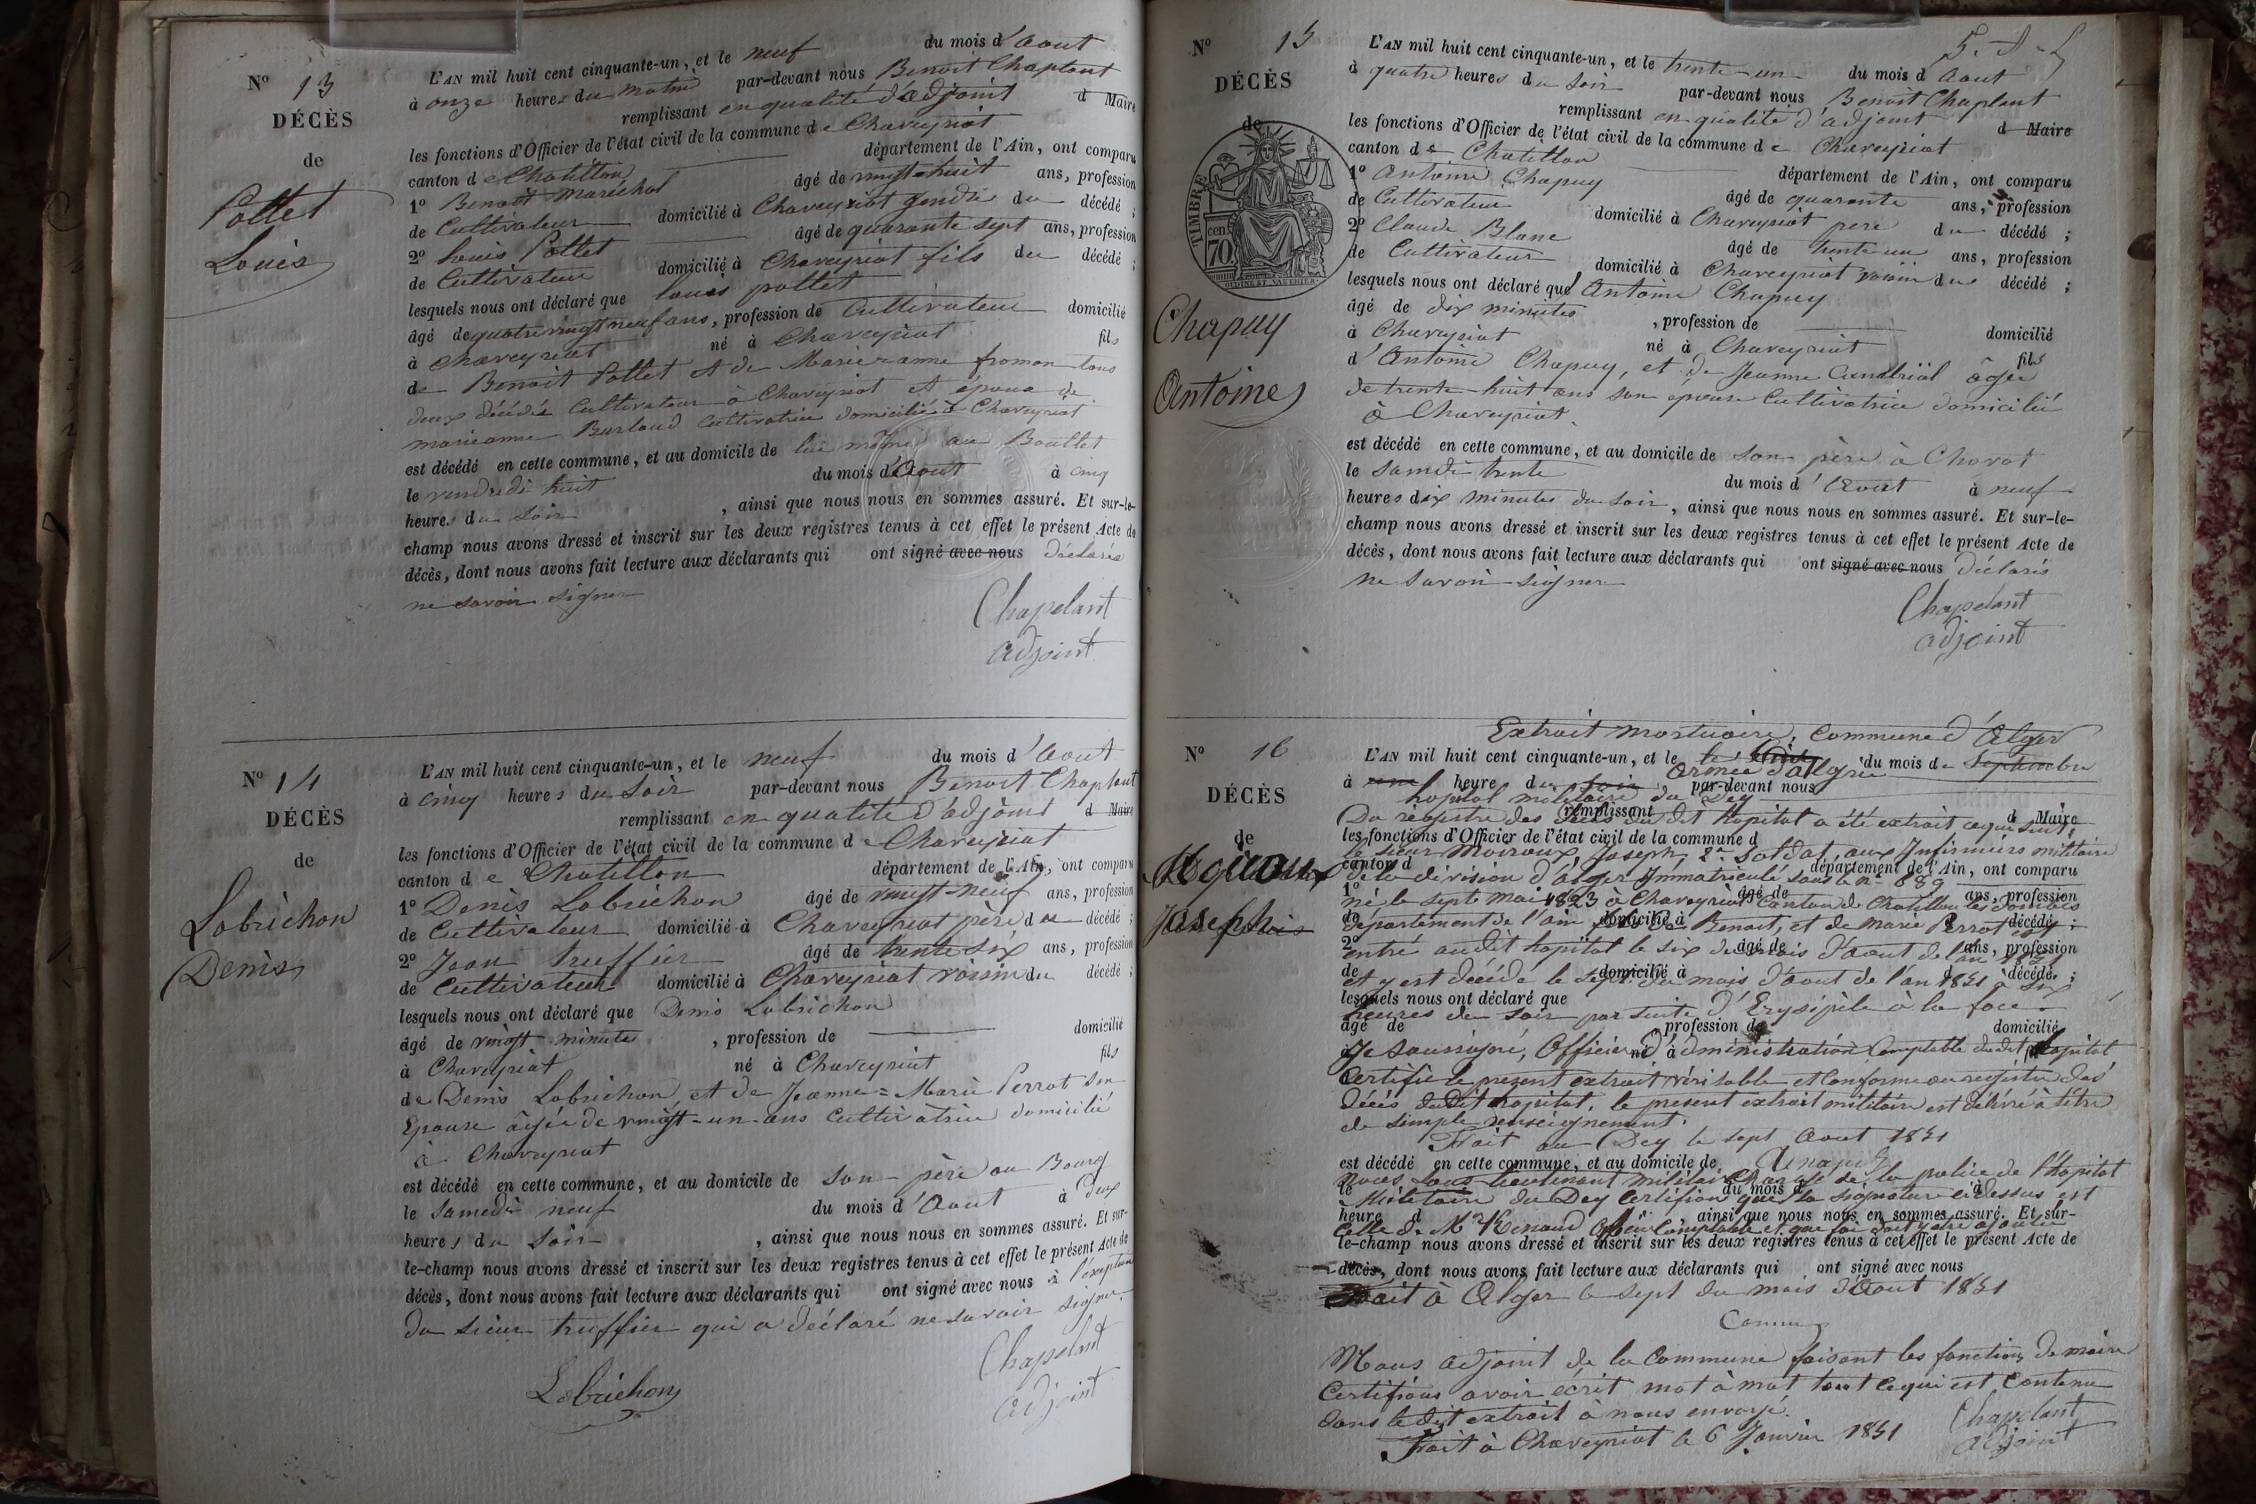 N° 13
DÉCÈS
de
Pottet
Louis
L'AN mil huit cent cinquante-un, et le neuf du mois d'Aout
à onze heures du matin par-devant nous Benoit Chaplant
remplissant en qualité d'adjoint d Maire
les fonctions d'Officier de l'état civil de la commune de Chaveyriat
canton de Chatillon département de l'Ain, ont comparu
1° Benoit Maréchal âgé de vingt-huit ans, profession
de Cultivateur domicilié à Chaveyriat gendre du décédé ;
2° Louis Pottet âgé de quarante sept ans, profession
de Cultivateur domicilié à Chaveyriat fils du décédé ;
lesquels nous ont déclaré que Louis pottet
âgé de quatre vingt neuf ans, profession de Cultivateur domicilié
à Chaveyriat né à Chaveyriat fils
de Benoit Pottet et de Marieanne froman tous
deux décédés Cultivateur à Chaveyriat et époux de
marieanne Burlaud Cultivatrice domiciliée à Chaveyriat
est décédé en cette commune, et au domicile de lui même au Bouttet
le vendredi huit du mois d'Aout à cinq
heures du soir, ainsi que nous nous en sommes assuré. Et sur-le-
champ nous avons dressé et inscrit sur les deux registres tenus à cet effet le présent Acte de
décès, dont nous avons fait lecture aux déclarants qui ont signé avec nous déclarés
ne savoir signer
Chapelant
adjoint
N° 14
DÉCÈS
de
Lobrichon
Denis
L'AN mil huit cent cinquante-un, et le neuf du mois d'Aout
à cinq heures du soir par-devant nous Benoit Chaplant
remplissant en qualité d'adjoint d Maire
les fonctions d'Officier de l'état civil de la commune de Chaveyriat
canton de Chatillon département de l'Ain, ont comparu
1° Denis Lobrichon âgé de vingt-neuf ans, profession
de Cultivateur domicilié à Chaveyriat père du décédé ;
2° Jean truffier âgé de trente six ans, profession
de Cultivateur domicilié à Chaveyriat voisin du décédé ;
lesquels nous ont déclaré que Denis Lobrichon
âgé de vingt minutes, profession de domicilié
à Chaveyriat né à Chaveyriat fils
de Denis Lobrichon, et de Jeanne-Marie Perrot son
Epouse âgée de vingt-un ans Cultivatrice domicilié
à Chaveyriat
est décédé en cette commune, et au domicile de son père au Bourg
le samedi neuf du mois d'Aout à deux
heures du soir, ainsi que nous nous en sommes assuré. Et sur-
le-champ nous avons dressé et inscrit sur les deux registres tenus à cet effet le présent Acte de
décès, dont nous avons fait lecture aux déclarants qui ont signé avec nous à l'exception
du sieur truffier qui a déclaré ne savoir signer.
Lobrichon
Chapelant
adjoint
N° 15
DÉCÈS
de
TIMBRE
cen. 70
Chapuy
Antoine
L'AN mil huit cent cinquante-un, et le trente-un du mois d Aout
à quatre heures du soir par-devant nous Benoit Chaplant
remplissant en qualité d'adjoint d Maire
les fonctions d'Officier de l'état civil de la commune de Chaveyriat
canton de Chatillon département de l'Ain, ont comparu
1° Antoine Chapuy âgé de quarante ans, profession
de Cultivateur domicilié à Chaveyriat père du décédé ;
2° Claude Blanc âgé de trente un ans, profession
de Cultivateur domicilié à Chaveyriat voisin du décédé ;
lesquels nous ont déclaré que Antoine Chapuy
âgé de dix minutes, profession de domicilié
à Chaveyriat né à Chaveyriat fils
d'Antoine Chapuy, et de Jeanne âgée
de trente-huit ans son épouse Cultivatrice domicilié
à Chaveyriat.
est décédé en cette commune, et au domicile de son père à Chorot
le samedi trente du mois d'Aout à neuf
heures dix minutes du soir, ainsi que nous nous en sommes assuré. Et sur-le-
champ nous avons dressé et inscrit sur les deux registres tenus à cet effet le présent Acte de
décès, dont nous avons fait lecture aux déclarants qui ont signé avec nous déclarés
ne savoir signer
Chapelant
adjoint
N° 16
DÉCÈS
de
Joseph
Extrait mortuaire, Commune d'Alger
L'AN mil huit cent cinquante-un, et le du mois de Septembre
Armée d'Algérie
à heure du soir par-devant nous
hopital militaire du Dey
remplissant d Maire
Du registre des décès dudit hopital a été extrait ce qui suit,
les fonctions d'Officier de l'état civil de la commune d
le sieur Moiroux Joseph, 2e Soldat, aux Infirmiers militaire
canton d département de l'Ain, ont comparu
de la division d'alger Immatriculé sous le n° 889
1° âgé de ans, profession
né le sept mai 1823 à Chaveyriat Canton de Chatillon les Dombes
de domicilié à décédé ;
département de l'ain fils de Benoit, et de marie Perrot
2° âgé de ans, profession
entré audit hopital le six du mois d'aout de l'an 1851
de domicilié à d décédé ;
et y est décédé le sept du mois d'aout de l'an 1851 à six
lesquels nous ont déclaré que
heures du soir par suite d'Erysipèle à la face.
âgé de profession de domicilié
Je soussigné, Officier d'administration Comptable dudit hopital
né à
Certifie le présent extrait véritable et Conforme au registre des
décès dudit hopital. le présent extrait militaire est délivré à titre
de simple renseignement.
Fait au Dey le sept Aout 1851
est décédé en cette commune, et au domicile de
nous, sous lieutenant militaire Chargé de la police de l'hopital
le du mois d à
Militaire du Dey Certifions que la signature ci dessus est
heure d ainsi que nous nous en sommes assuré. Et sur-
Celle de Mr Renaud Officier Comptable et que foi doit y être ajoutée
le-champ nous avons dressé et inscrit sur les deux registres tenus à cet effet le présent Acte de
décès, dont nous avons fait lecture aux déclarants qui ont signé avec nous
Fait à Alger le sept du mois d'Aout 1851
Nous adjoint de la Commune faisant les fonctions de maire
Certifions avoir écrit mot à mot tout ce qui est Contenu
dans le dit extrait à nous envoyé.
Fait à Chaveyriat le 6 Janvier 1851
Chapelant
adjoint